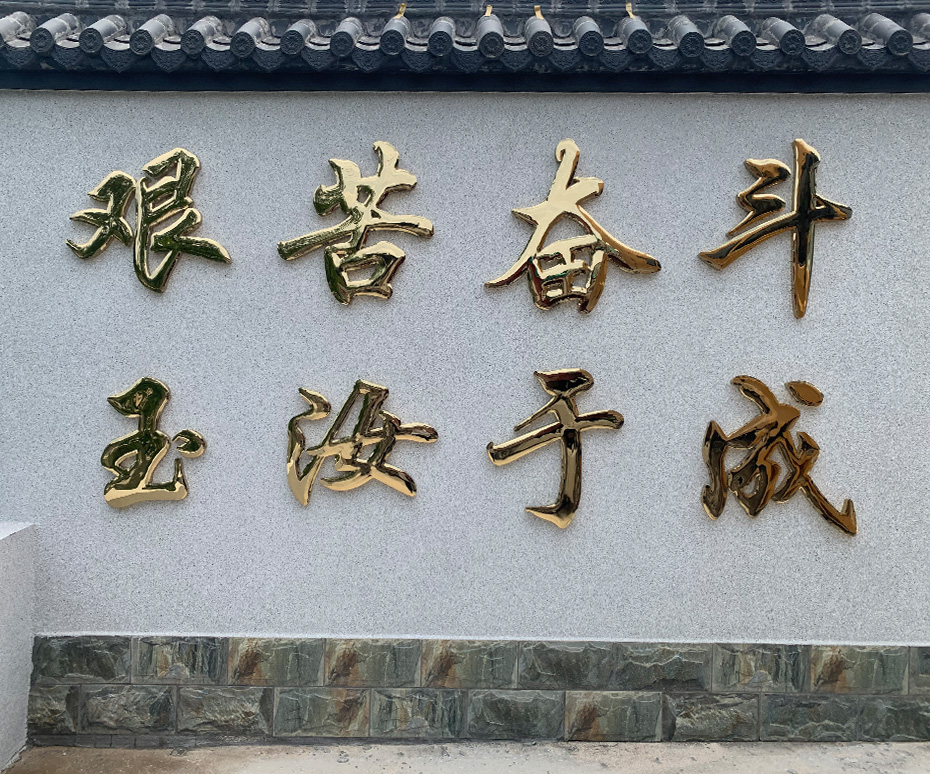 艰苦奋斗
玉汝于成